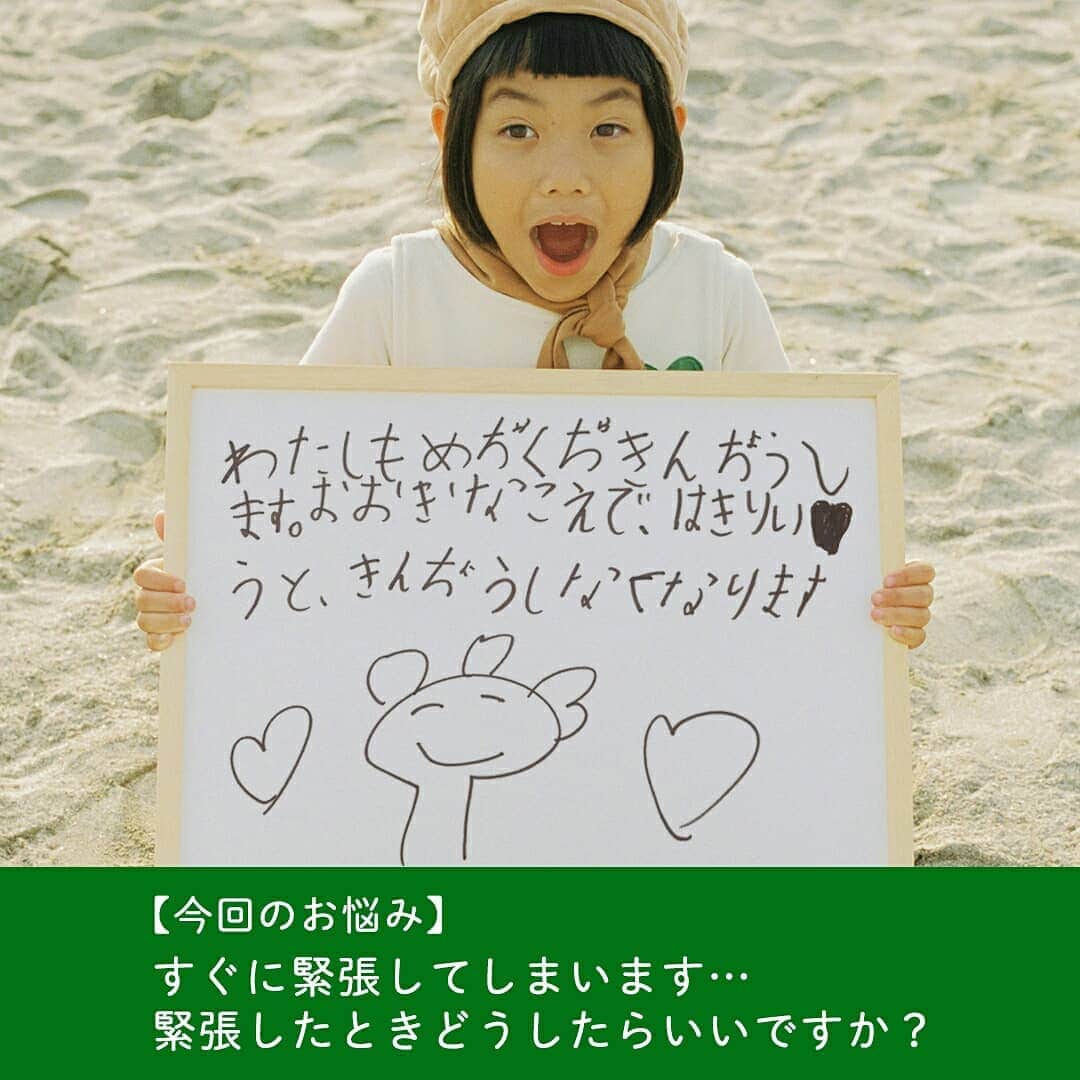 わたしもめぢくぢきんぢうし
ます。おおきなこえで、はきりい
うと、きんぢうしなくなります
【今回のお悩み】
すぐに緊張してしまいます…
緊張したときどうしたらいいですか？